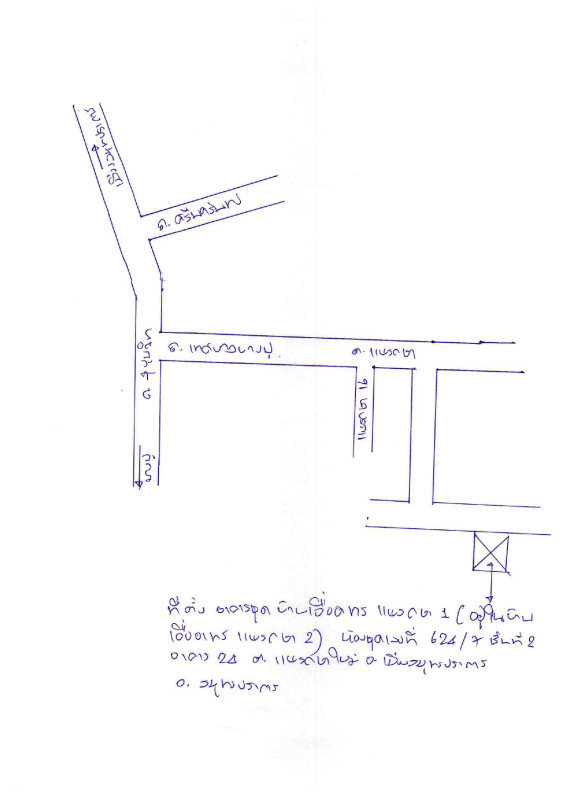 ถ. ศรีนครินทร์
ถ. สุขุมวิท
ถ. เทศบาลบางปู
ถ. แพรกษา
แพรกษา 16
บางปู
ที่ตั้ง อาคารชุด บ้านเอื้ออาทร แพรกษา 1 (อยู่ในบ้าน
เอื้ออาทร แพรกษา 2) ห้องชุดเลขที่ 624/7 ชั้นที่ 2
อาคาร 24 ต. แพรกษาใหม่ อ. เมืองสมุทรปราการ
จ. สมุทรปราการ